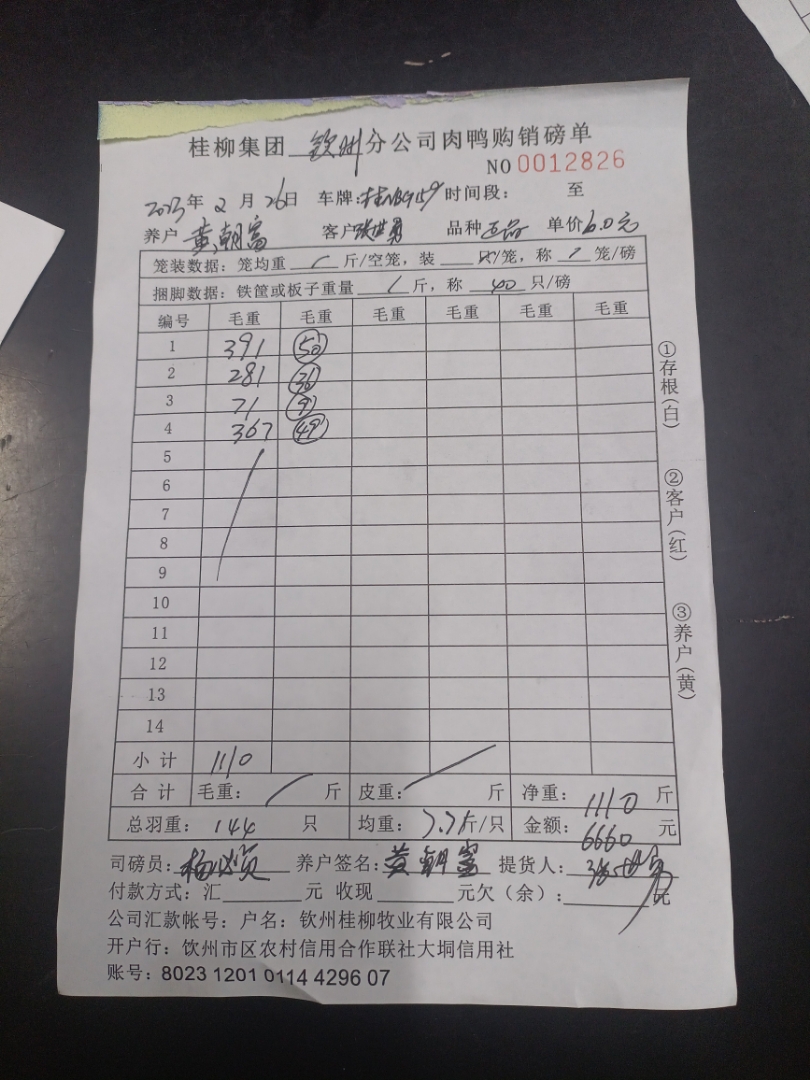 桂柳集团 钦州 分公司肉鸭购销磅单
NO 0012826
2023年 2 月 26日 车牌: 时间段: 至
养户 黄朝富 客户 张世勇 品种 正品 单价6.0元
笼装数据: 笼均重 / 斤/空笼, 装 只/笼, 称 / 笼/磅
捆脚数据: 铁筐或板子重量 / 斤, 称 40 只/磅
编号 毛重 毛重 毛重 毛重 毛重 毛重
1 391 50
2 281 36
3 71 9
4 367 49
5
6
7
8
9
10
11
12
13
14
小计 1110
合计 毛重: / 斤 皮重: / 斤 净重: 1110 斤
总羽重: 144 只 均重: 7.7斤/只 金额: 6660 元
司磅员: 养户签名: 黄朝富 提货人: 张世勇
付款方式: 汇 元 收现 元欠(余): 元
公司汇款帐号: 户名: 钦州桂柳牧业有限公司
开户行: 钦州市区农村信用合作联社大垌信用社
账号: 8023 1201 0114 4296 07
①存根(白)
②客户(红)
③养户(黄)